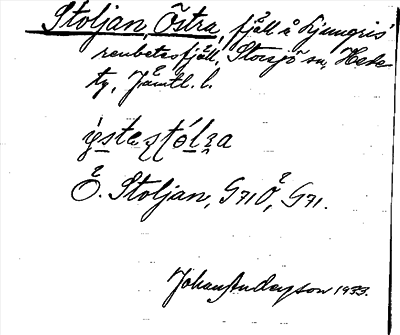 Stoljan, Östra, fjäll å Ljungris'
renbetesfjäll, Storsjö sn, Hede
tg, Jämtl. l.
Ö. Stoljan, G71Ö, G71.
Johan Andersson 1933.